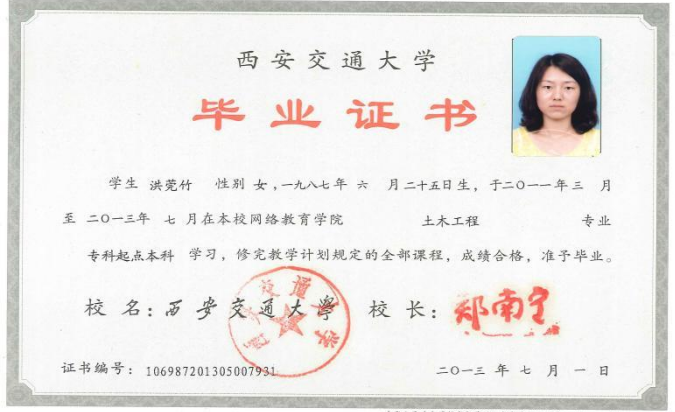 西安交通大学
毕业证书
学生 洪莞竹 性别 女，一九八七年 六 月二十五日生，于二〇一一年 三 月
至 二〇一三年 七 月在本校网络教育学院 土木工程 专业
专科起点本科 学习，修完教学计划规定的全部课程，成绩合格，准予毕业。
校 名：西安交通大學 校 长：郑南宁
证书编号：106987201305007931 二〇一三 年 七 月 一 日